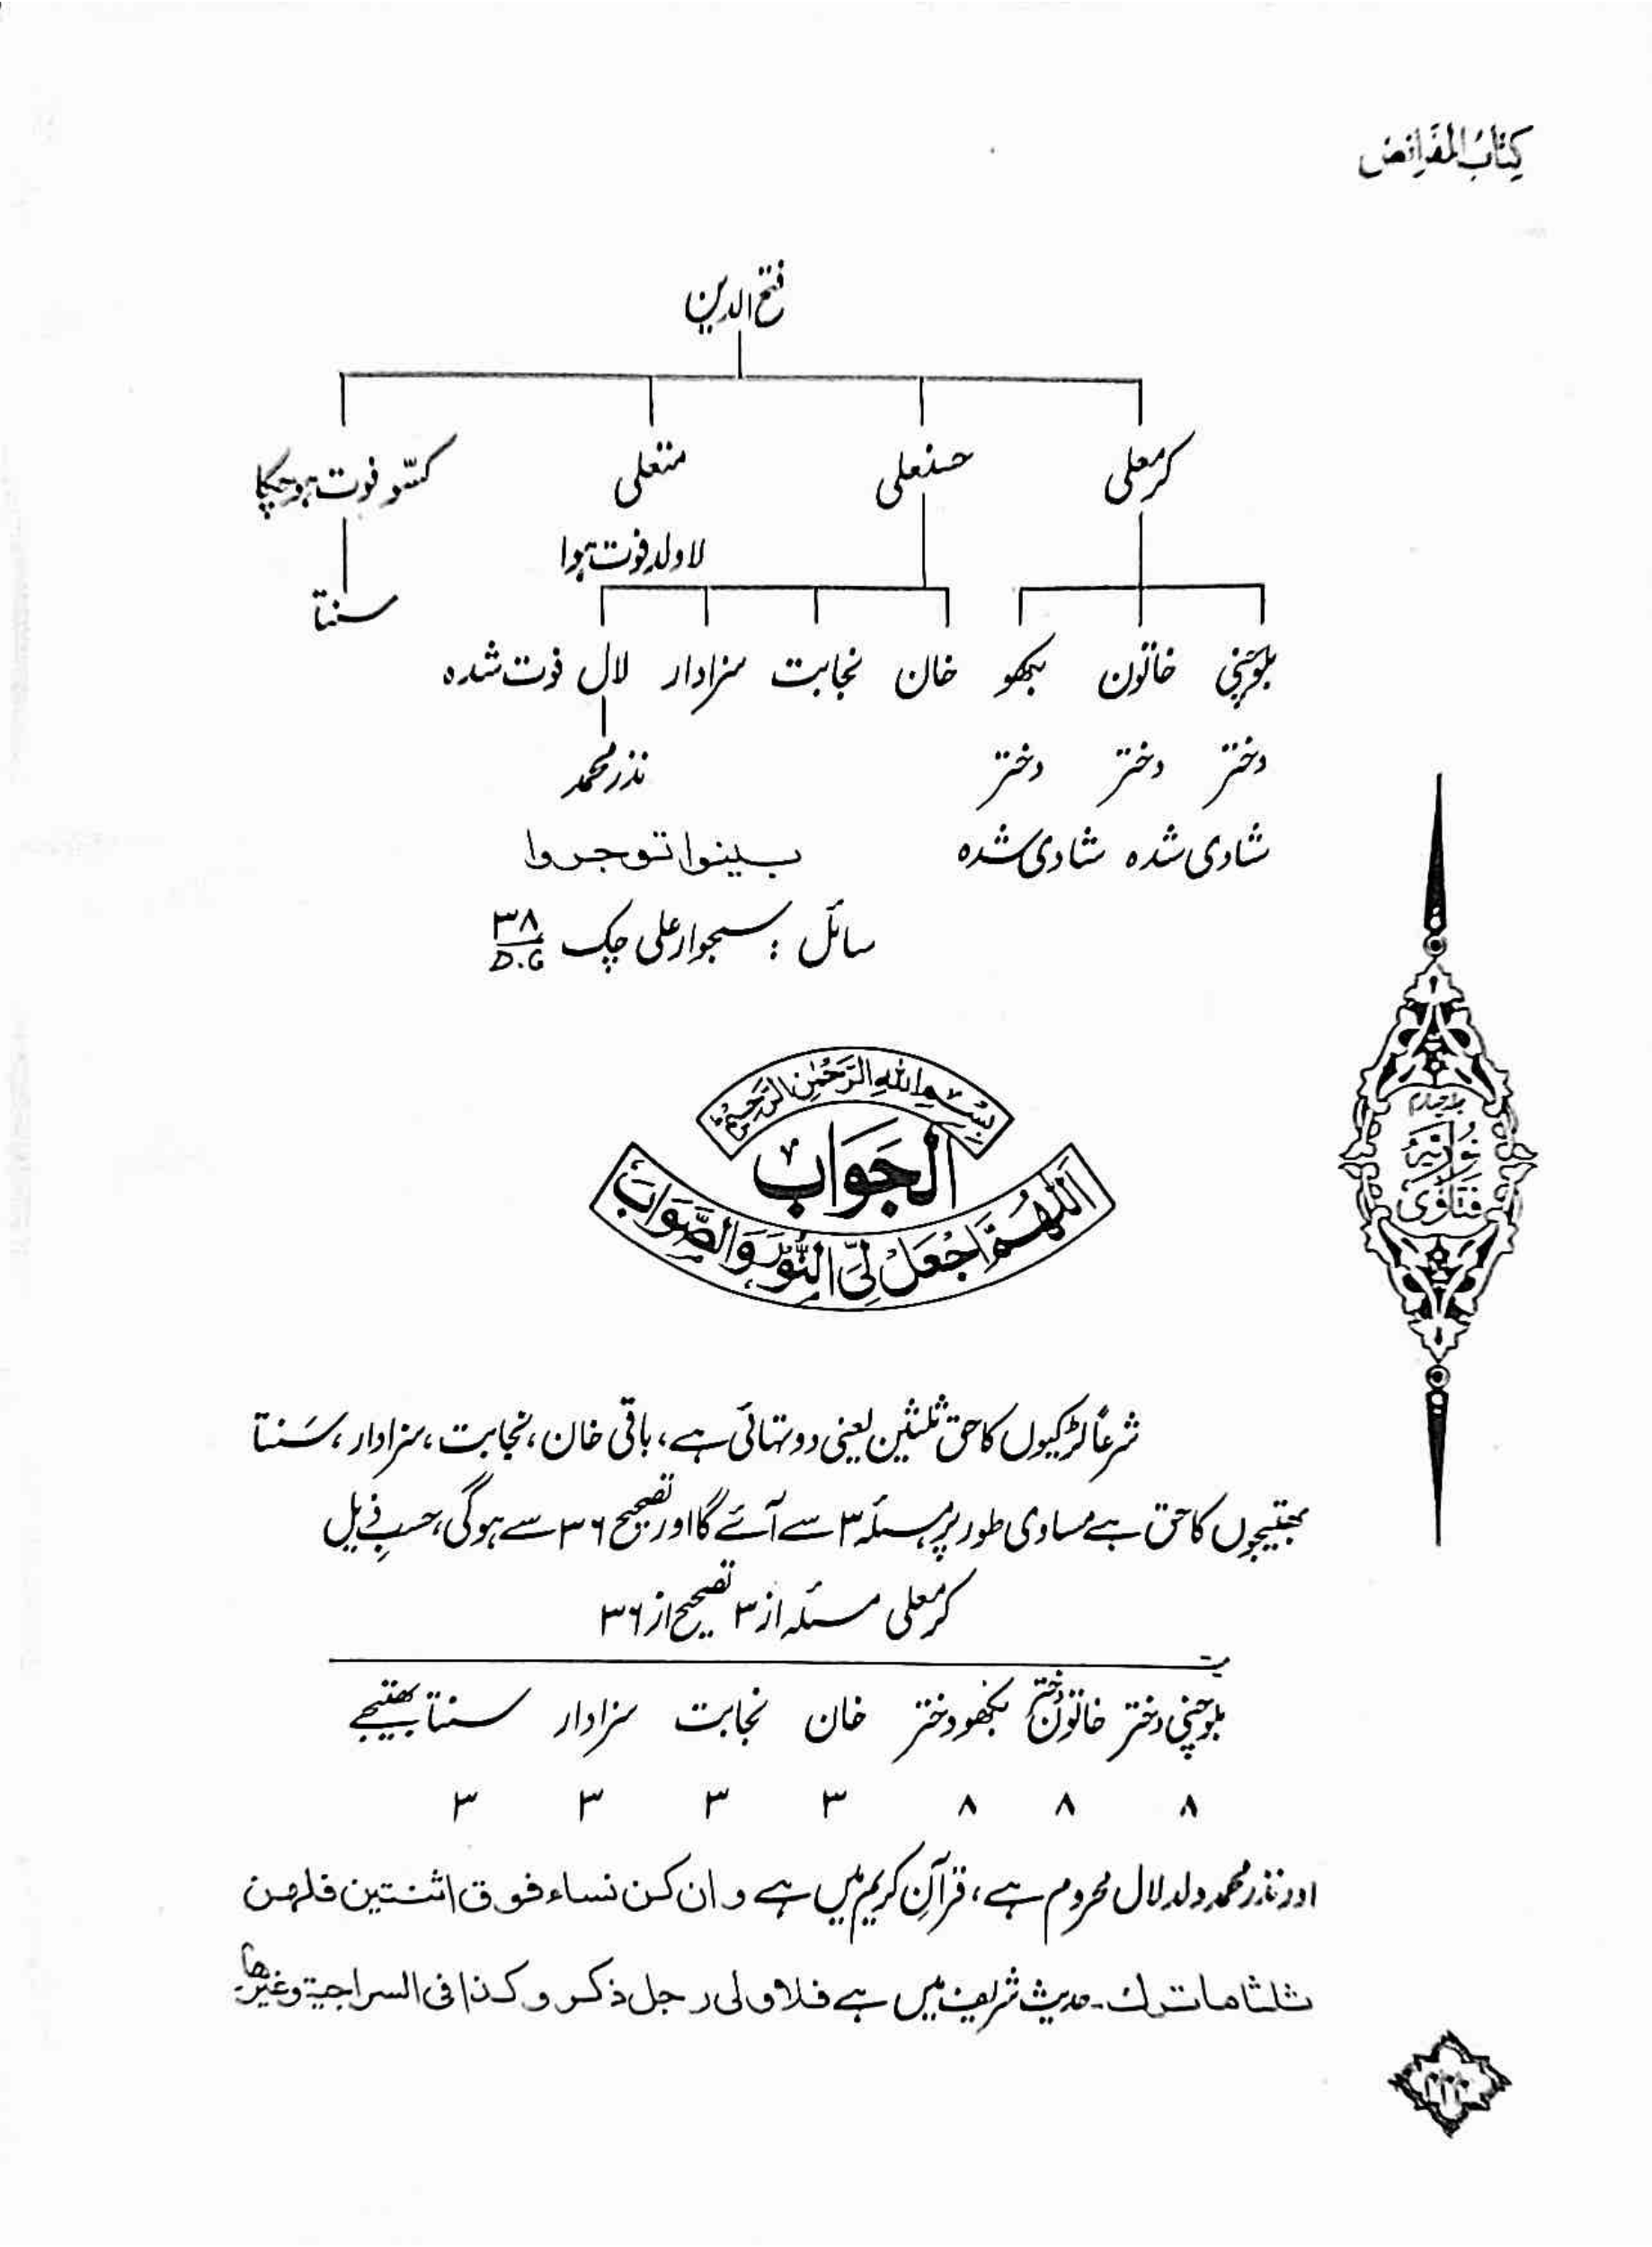 کتاب الفرائض
فتح الدین
کرمعلی حسنعلی منتعلی کسّو فوت ہوچکا
لا ولد فوت ہوا
سنتا
بلوچنی خاتون خان نجابت سزادار لال فوت شدہ
دختر دختر دختر نذر محمد
شادی شدہ شادی شدہ بینوا توجروا
سائل : سجوار علی چک ۳۸/D.G
بِسْمِ اللهِ الرَّحْمٰنِ الرَّحِيْمِ
الجَوَاب
اَللّٰهُمَّ اجْعَلْ لِيَ النُّوْرَ وَالصَّوَابَ
جلد چہارم
فتاوٰی نوریہ
شرعاً لڑکیوں کا حق ثلثین یعنی دو تہائی ہے، باقی خان، نجابت، سزادار، سَنتا
بھتیجوں کا حق ہے مساوی طور پر مسئلہ ۳ سے آئے گا اور تصحیح ۳۶ سے ہوگی، حسبِ ذیل
کرمعلی مسئلہ از ۳ تصحیح از ۳۶
بلوچنی دختر خاتون دختر دختر خان نجابت سزادار سنتا بھتیجے
۸ ۸ ۸ ۳ ۳ ۳ ۳
اور نذر محمد ولد لال محروم ہے، قرآنِ کریم میں ہے و ان کن نساء فوق اثنتین فلهن
ثلثا ما ترك۔ حدیث شریف میں ہے فلاولی رجل ذکر و کذا فی السراجیة وغیرها۔